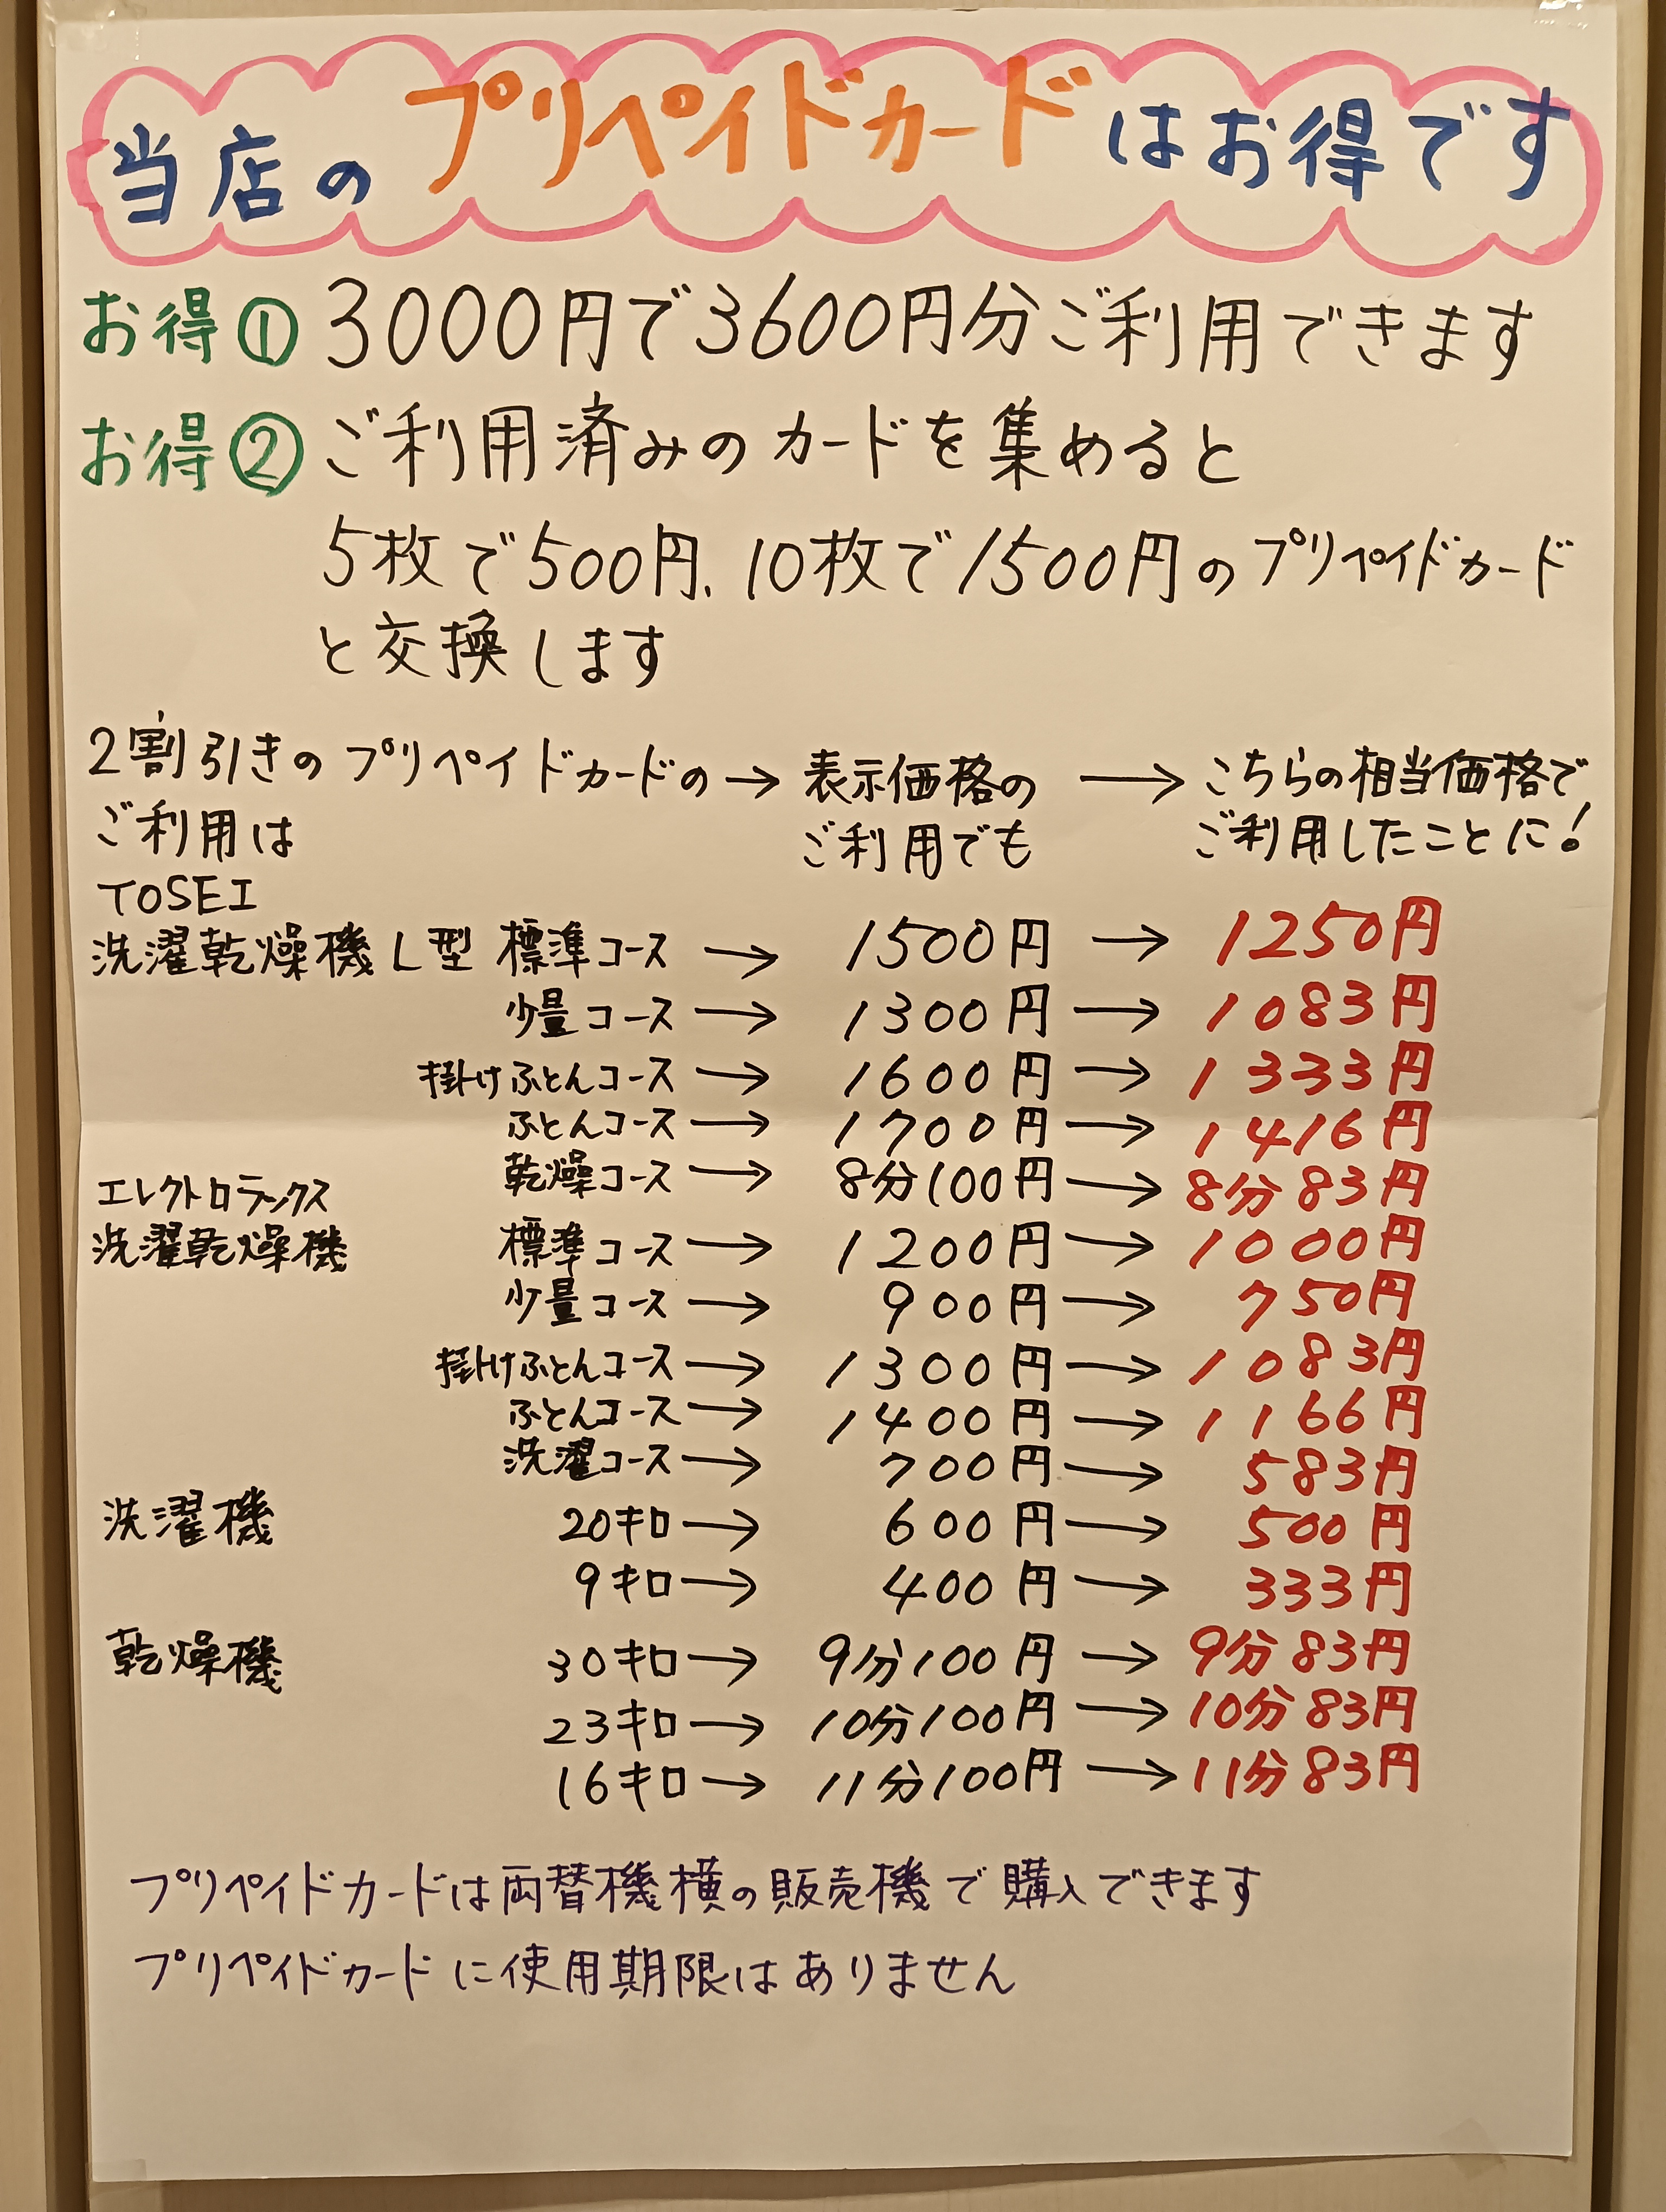 当店のプリペイドカードはお得です
お得① 3000円で3600円分ご利用できます
お得② ご利用済みのカードを集めると
5枚で500円、10枚で1500円のプリペイドカード
と交換します
2割引きのプリペイドカードの → 表示価格の → こちらの相当価格で
ご利用は ご利用でも ご利用したことに!
TOSEI
洗濯乾燥機L型 標準コース → 1500円 → 1250円
少量コース → 1300円 → 1083円
掛けふとんコース → 1600円 → 1333円
ふとんコース → 1700円 → 1416円
乾燥コース → 8分100円 → 8分83円
エレクトロラックス
洗濯乾燥機 標準コース → 1200円 → 1000円
少量コース → 900円 → 750円
掛けふとんコース → 1300円 → 1083円
ふとんコース → 1400円 → 1166円
洗濯コース → 700円 → 583円
洗濯機 20キロ → 600円 → 500円
9キロ → 400円 → 333円
乾燥機 30キロ → 9分100円 → 9分83円
23キロ → 10分100円 → 10分83円
16キロ → 11分100円 → 11分83円
プリペイドカードは両替機横の販売機で購入できます
プリペイドカードに使用期限はありません